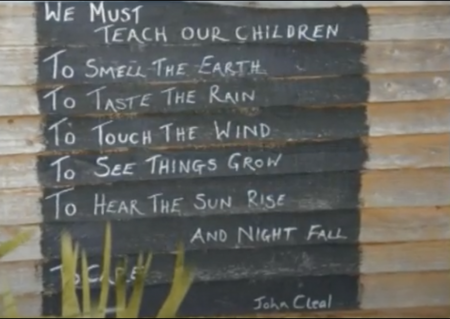 We Must
Teach our Children
To Smell The Earth
To Taste The Rain
To Touch The Wind
To See Things Grow
To Hear The Sun Rise
And Night Fall
To Care
John Cleal